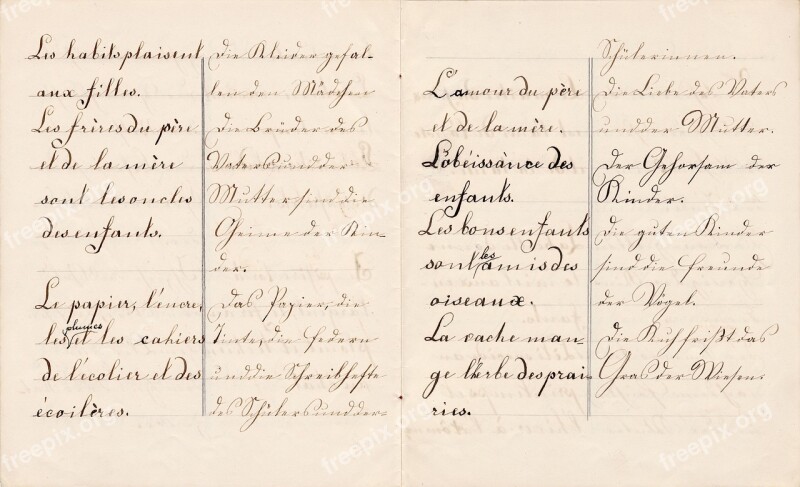 Les habits plaisent
aux filles.
Les frères du père
et de la mère
sont les oncles
des enfants.
Le papier, l'encre,
plumes
les et les cahiers
de l'écolier et des
écoilères.
Die Kleider gefal-
len den Mädchen
Die Brüder des
Vaters und der
Mutter sind die
der Kin-
der.
Das Papier, die
Tinte, die Federn
und die Schreibhefte
des Schülers und der-
L'amour du père
et de la mère.
L'obéissànce des
enfants.
Les bons enfants
les
sont amis des
oiseaux.
La vache man-
ge l'herbe des prai-
ries.
Schülerinnen.
Die Liebe des Vaters
und der Mutter.
Der Gehorsam der
Kinder.
Die guten Kinder
sind die Freunde
der Vögel.
Die Kuh frißt das
Gras der Wiesen.